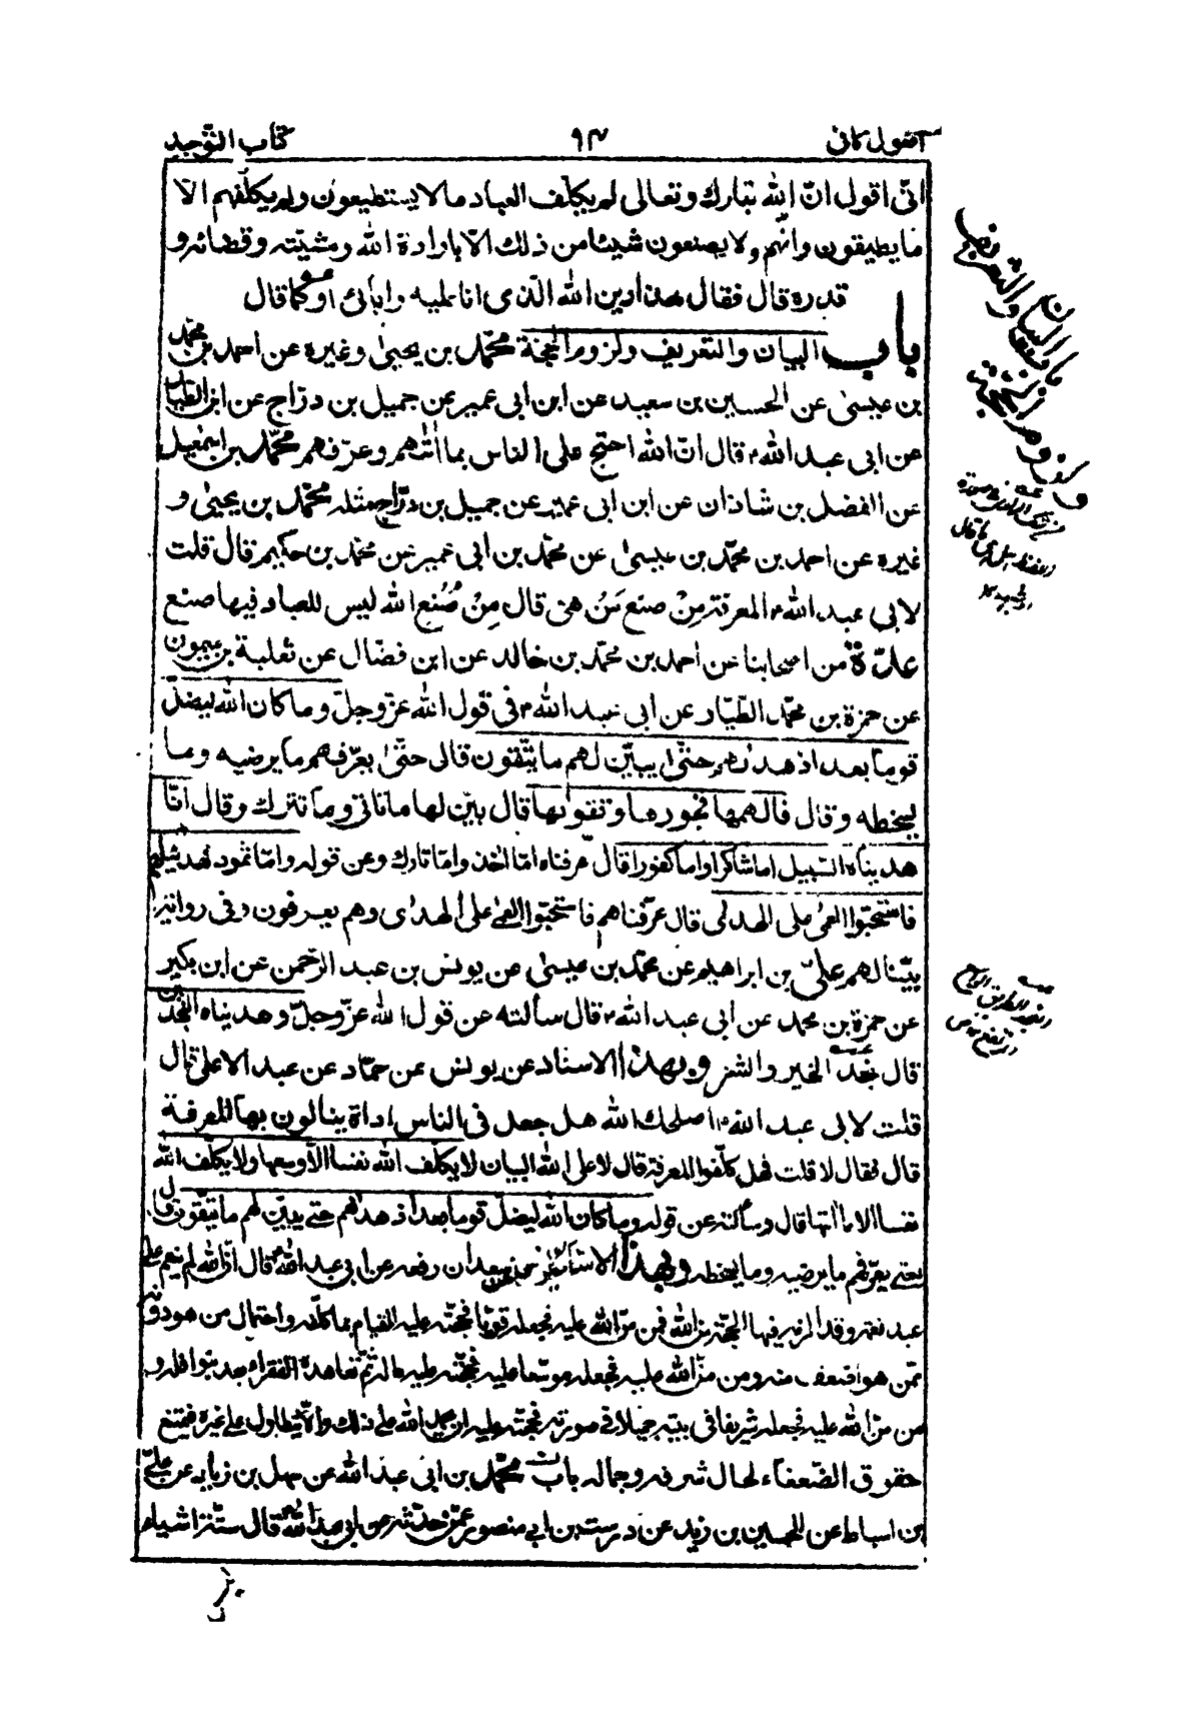 اصول كافى ٩٣ كتاب التّوحيد
انّى اقول انّ الله تبارك وتعالى لم يكلّف العباد مالا يستطيعون ولم يكلّفهم الّا
ما يطيقون وانّهم لا يصنعون شيئا من ذلك الّا بارادة الله ومشيّته وقضائه و
قدره قال فقال هذا دين الله الّذى انا عليه وابائى او كما قال
باب البيان والتعريف ولزوم الحجّة محمّد بن يحيى وغيره عن احمد بن محمّد
بن عيسى عن الحسين بن سعيد عن ابن ابى عمير عن جميل بن درّاج عن ابن الطيّار
عن ابى عبد الله ع قال انّ الله احتج على الناس بما اتٰهم وعرّفهم محمّد بن اسمٰعيل
عن الفضل بن شاذان عن ابن ابى عمير عن جميل بن درّاج مثله محمّد بن يحيى و
غيره عن احمد بن محمّد بن عيسى عن محمّد بن ابى عمير عن محمّد بن حكيم قال قلت
لابى عبد الله ع المعرفة مِنْ صنع مَنْ هى قال مِنْ صُنْع الله ليس للعباد فيها صنع
عدّة من اصحابنا عن احمد بن محمّد بن خالد عن ابن فضّال عن ثعلبة بن ميمون
عن حمزة بن محمّد الطّيّار عن ابى عبد الله ع فى قول الله عزّ وجلّ وما كان الله ليضلّ
قوما بعد اذ هدٰىهم حتّى يبيّن لهم ما يتّقون قال حتّى يعرّفهم ما يرضيه وما
يسخطه وقال فالهمها فجورها وتقوٰىها قال بيّن لها ما تاتى وما تترك وقال انّا
هديناه السّبيل اما شاكرا واما كفورا قال عرفناه امّا اخذ وامّا تارك وعن قوله وامّا ثمود فهديناهم
فاستحبّوا العمى على الهدى قال عرّفناهم فاستحبّوا العمى على الهدى وهم يعرفون وفى رواية
بيّنا لهم علىّ بن ابراهيم عن محمّد بن عيسى عن يونس بن عبد الرّحمن عن ابن بكير
عن حمزة بن محمد عن ابى عبد الله ع قال سألته عن قول الله عزّ وجلّ وهديناه النّجدين
قال نجد الخير والشّرّ وبهذا الاسناد عن يونس عن حمّاد عن عبد الاعلى قال
قلت لابى عبد الله ع اصلحك الله هل جعل فى الناس اداة ينالون بها المعرفة
قال فقال لا قلت فهل كلّفوا المعرفة قال لا على الله البيان لا يكلّف الله نفسا الّا وسعها ولا يكلّف الله
نفسا الا ما اتٰها قال وسألته عن قوله وما كان الله ليضلّ قوما بعد اذ هدٰهم حتى يبيّن لهم ما يتّقون قال
حتى يعرّفهم ما يرضيه وما يسخطه وبهذا الاسناد عن يونس عن سعدان رفعه عن ابى عبد الله ع قال انّ الله لم ينعم على
عبد نعمة وقد الزمه فيها الحجّة من الله فمن منّ الله عليه فجعله قويّا فحجّته عليه القيام بما كلّفه واحتمال من هو دونه
ممّن هو اضعف منه ومن منّ الله عليه فجعله موسّعا عليه فحجّته عليه ماله ثمّ تعاهده الفقراء بعد بنوافله و
من منّ الله عليه فجعله شريفا فى بيته جميلا فى صورته فحجّته عليه ان يحمد الله على ذلك والّا يتطاول على غيره فيمنع
حقوق الضّعفاء لحال شرفه وجماله باب محمّد بن ابى عبد الله عن سهل بن زياد عن علىّ
بن اسباط عن الحسين بن زيد عن درست بن ابى منصور عمّن حدّثه عن ابى عبد الله ع قال ستّة اشياء
باب البيان والتعريف
ولزوم الحجّة